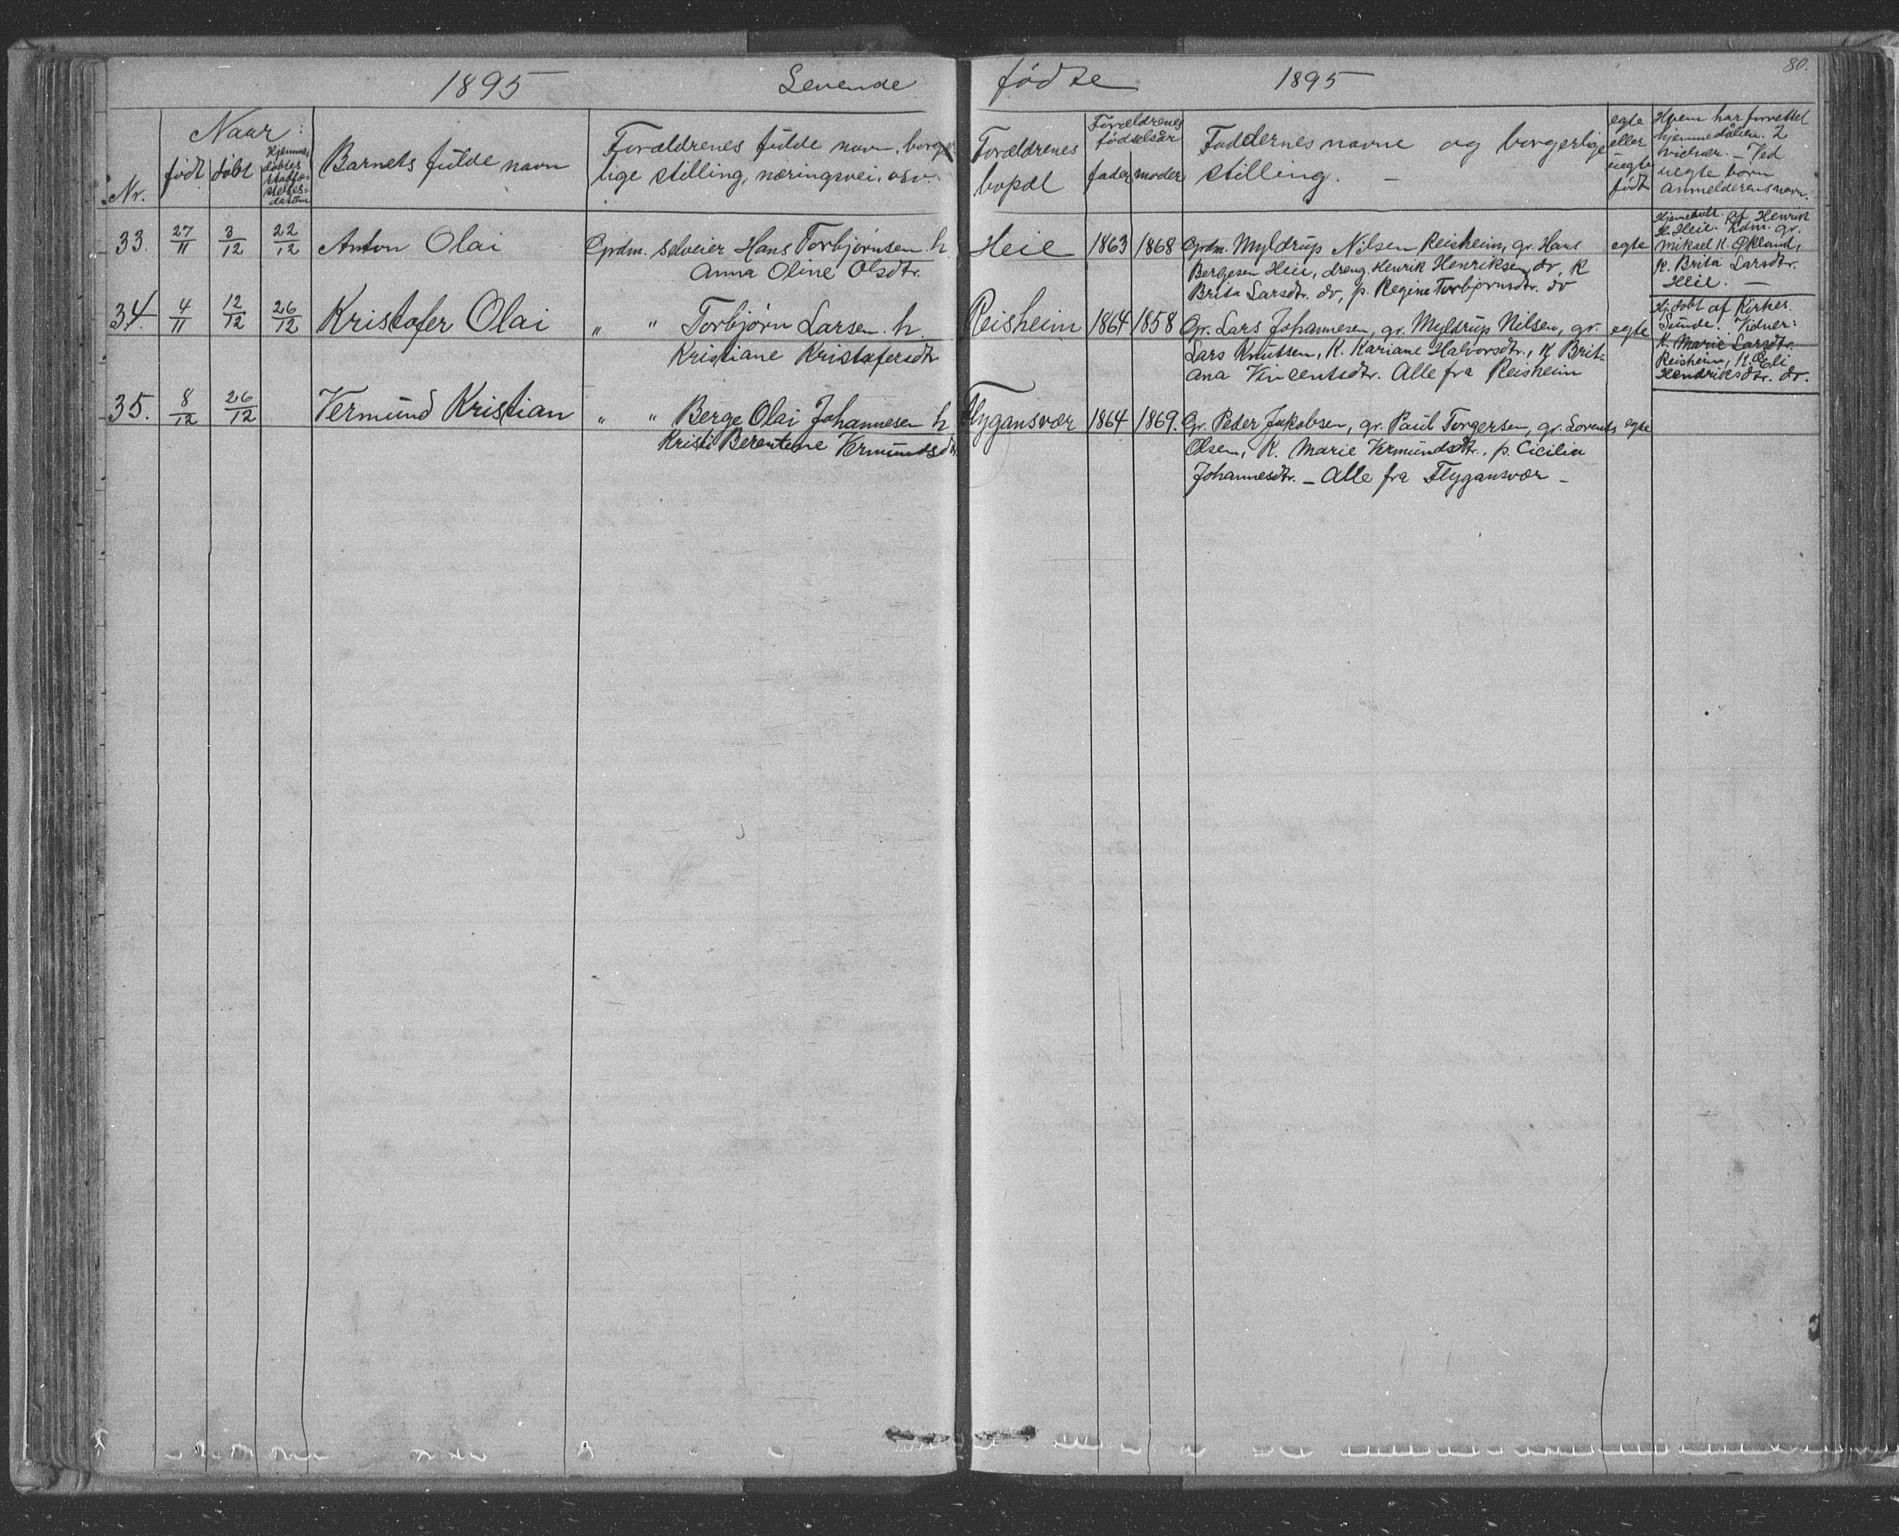 1895 Levende fødte 1895 80.
Nr.
Naar:
født døbt
Hjemme-
døbtes
stadfæ-
stelses-
datum
Barnets fulde navn
Forældrenes fulde navn, borger-
lige stilling, næringsvei, osv.
Forældrenes
bopæl
Forældrenes
fødselsår
fader moder
Faddernes navne og borgerlige
stilling. —
egte
eller
uegte
født
Hvem har forrettet
hjemmedåben. 2
vidner. — Ved
uegte børn
anmelderens navn.
33. 27/11 3/12 22/12 Anton Olai Grdm. selveier Hans Torbjørnsen h.
Anna Oline Olsdtr.
Heie 1863 1868 Grdm. Myldrup Nilsen Reisheim, gr. Hans
Bergesen Heie, dreng Henrik Henriksen do, K
Brita Larsdtr. do, p. Regine Torbjørnsdtr. do
egte
Hjemdøbt af Henrik
H. Heie. Kdm. gr.
Mikael K. Økland,
K. Brita Larsdtr.
Heie. —
34. 4/11 12/12 26/12 Kristofer Olai " " Torbjørn Larsen h.
Kristiane Kristofersdtr
Reisheim 1864 1858 Gr. Lars Johannesen, gr. Myldrup Nilsen, gr.
Lars Knutsen, K. Kariane Halvorsdtr., K Brit-
ana Vincentsdtr. Alle fra Reisheim
egte
Hj. døbt af Kirkes.
Sunde. Vidner:
K. Marie Larsdtr.
Reisheim, K. Eli
Hendriksdtr. do.
35. 8/12 26/12 Vermund Kristian " " Berge Olai Johannesen h
Kristi Berentine Vermundsdtr
Flygansvær 1864 1869. Gr. Peder Jakobsen, gr. Paul Torgersen, gr. Lorents
Olsen, K. Marie Vermundsdtr., p. Cicilia
Johannesdtr. — Alle fra Flygansvær —
egte